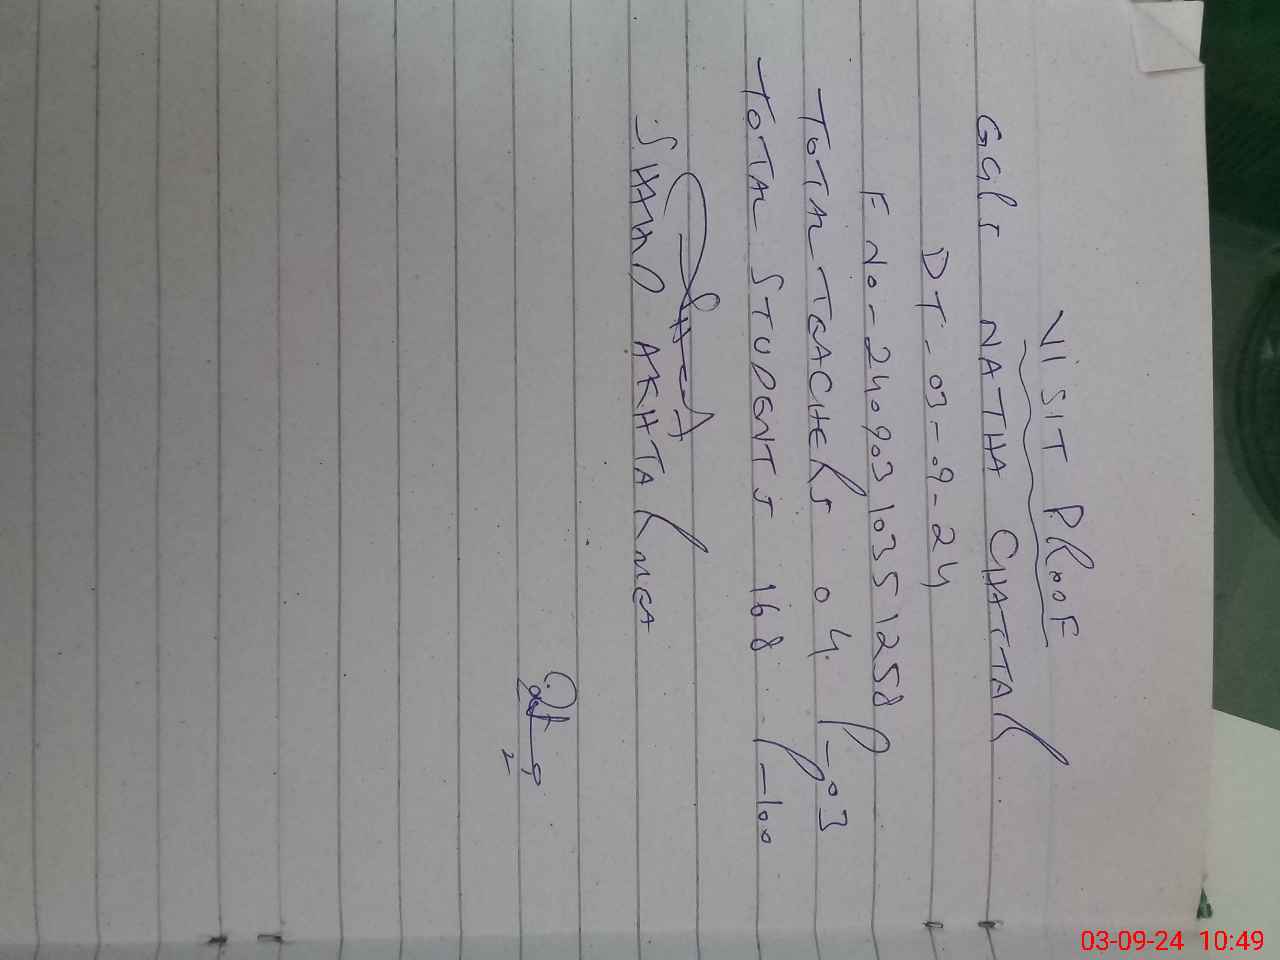 VISIT PROOF
GGPS NATHA CHATTAR
DT - 03 - 9 - 24
F No - 24090310351258
TOTAL TEACHERS 04. P - 03
TOTAL STUDENTS 168 P - 100
SHAHID AKHTAR MEA
03-09-24 10:49